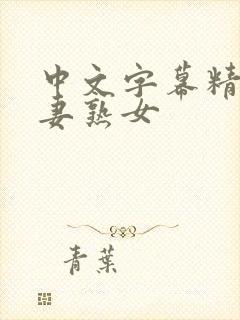 中文字幕精
妻熟女
青葉